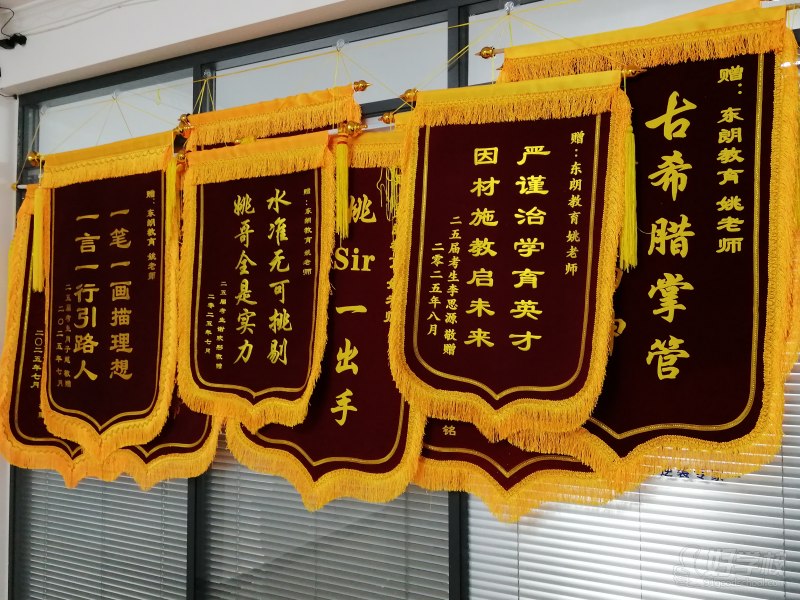 赠：东朗教育 姚老师
一笔一画描理想
一言一行引路人
二〇二五年七月
二〇二五年七月
赠：东朗教育 姚老师
水准无可挑剔
姚哥全是实力
二〇二五年七月
姚
Sir
一出手
赠：东朗教育 姚老师
严谨治学育英才
因材施教启未来
二五届考生李思源 敬赠
二零二五年八月
铭
赠：东朗教育 姚老师
古希腊掌管